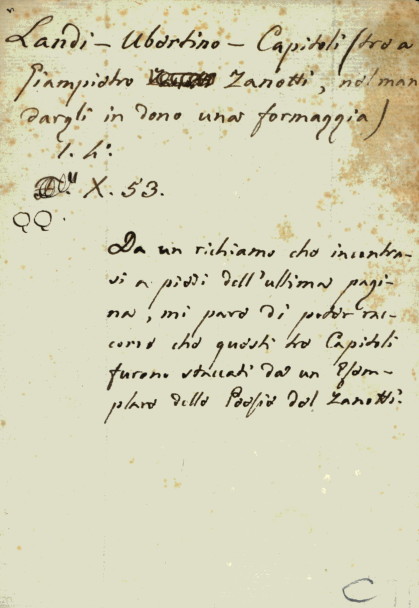 Landi - Ubertino - Capitoli (tre a
Giampietro Zanotti, nel man
dargli in dono una formaggia)
1. 4°.
X. 53.
QQ.
Da un richiamo che incontra-
si a piedi dell'ultima pagi-
na, mi pare di poter rac-
corre che questi tre Capitoli
furono staccati da un Esem-
plare delle Poesie del Zanotti.
C